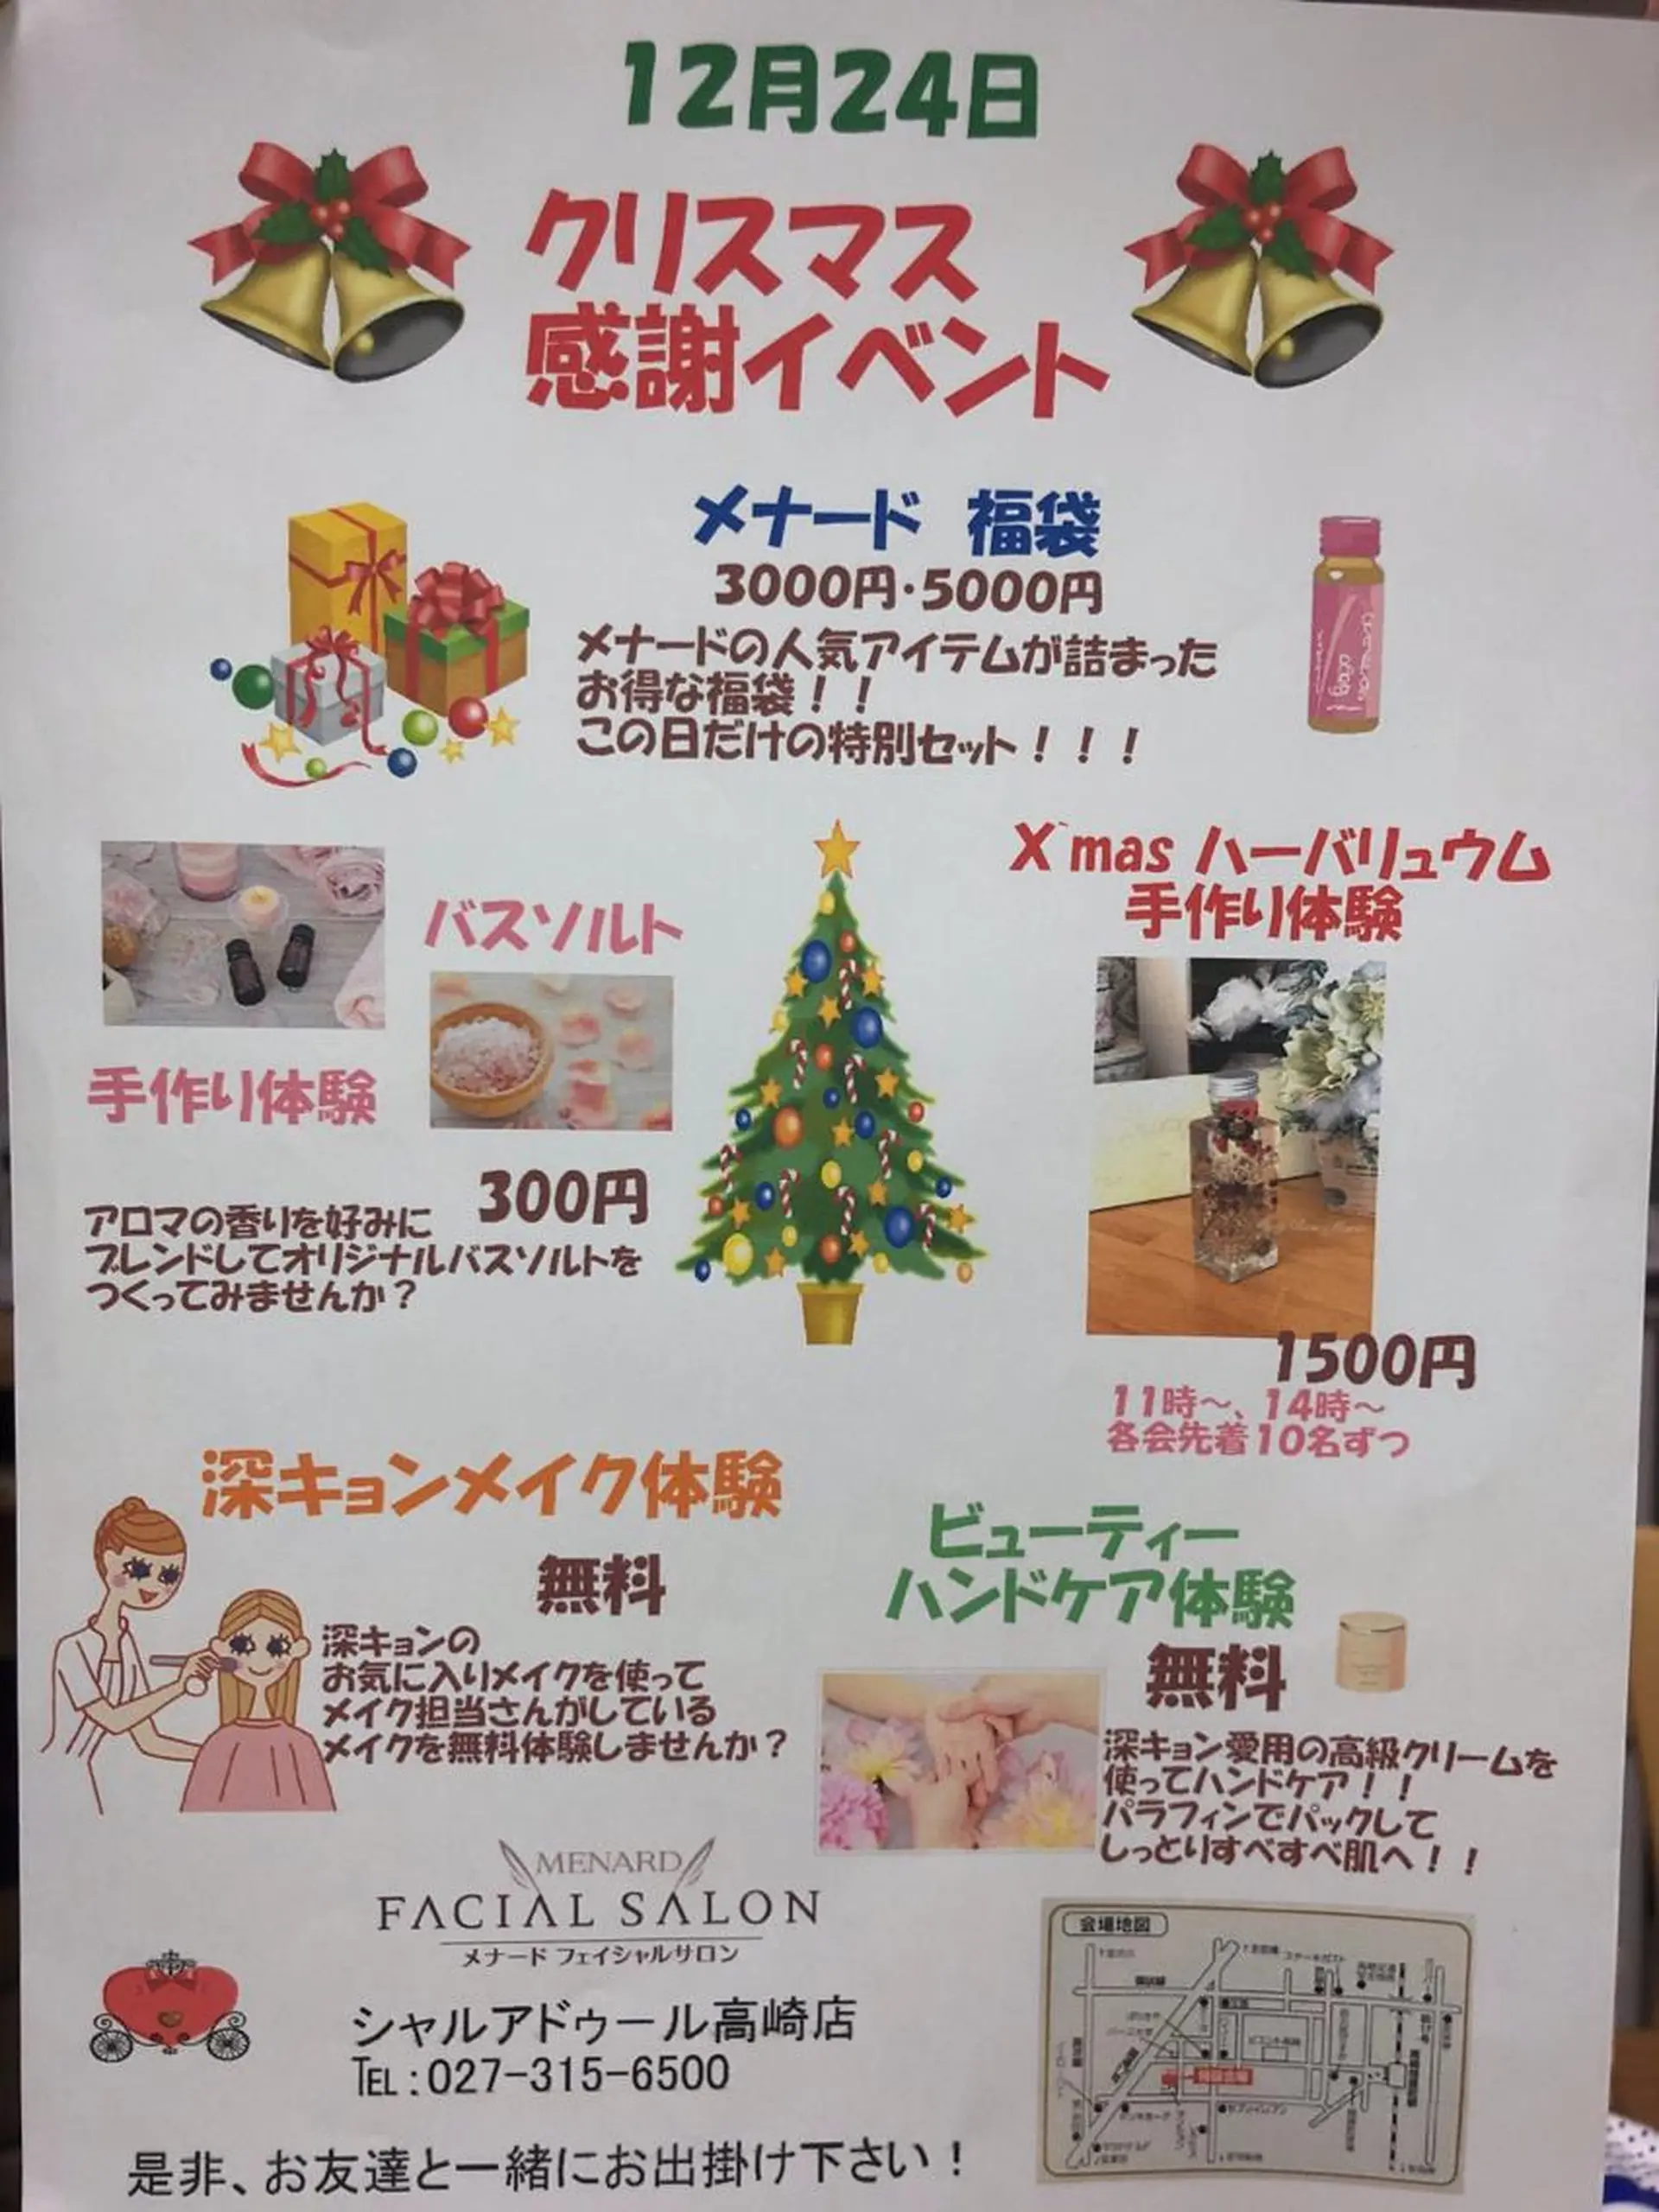 12月24日
クリスマス
感謝イベント
メナード 福袋
3000円・5000円
メナードの人気アイテムが詰まった
お得な福袋！！
この日だけの特別セット！！！
バスソルト
手作り体験
300円
アロマの香りを好みに
ブレンドしてオリジナルバスソルトを
つくってみませんか？
X`mas ハーバリュウム
手作り体験
1500円
11時～、14時～
各会先着10名ずつ
深キョンメイク体験
無料
深キョンの
お気に入りメイクを使って
メイク担当さんがしている
メイクを無料体験しませんか？
ビューティー
ハンドケア体験
無料
深キョン愛用の高級クリームを
使ってハンドケア！！
パラフィンでパックして
しっとりすべすべ肌へ！！
MENARD
FACIAL SALON
メナード フェイシャルサロン
シャルアドゥール高崎店
TEL:027-315-6500
是非、お友達と一緒にお出掛け下さい！
会場地図